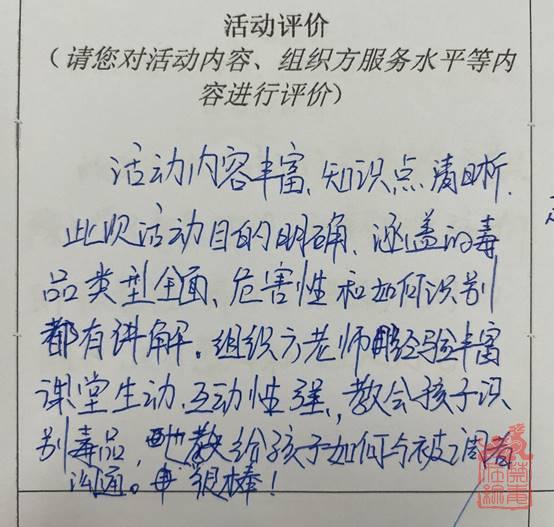 活动评价
(请您对活动内容、组织方服务水平等内
容进行评价)
活动内容丰富、知识点清晰.
此次活动目的明确、涵盖的毒
品类型全面、危害性和如何识别
都有讲解。组织方老师经验丰富
课堂生动、互动性强,教会孩子识
别毒品,也教给孩子如何与被调者
沟通。很棒!